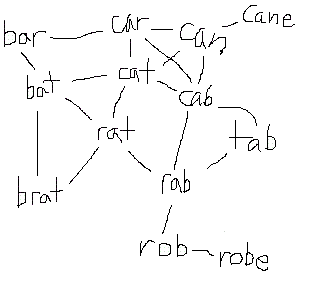 bar car can cane
bat cat cab
rat tab
brat rab
rob robe